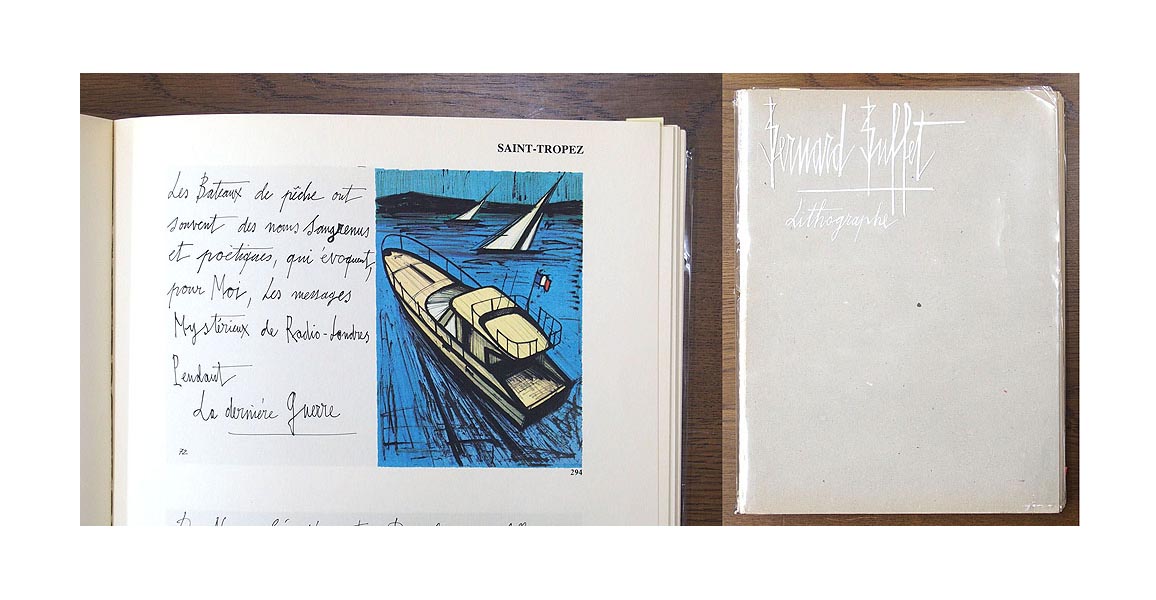 SAINT-TROPEZ
Les Bateaux de pêche ont
souvent des noms Saugrenus
et poétiques, qui évoquent,
pour Moi, Les messages
Mystérieux de Radio-Londres
Pendant
La dernière Guerre
72.
294
Bernard Buffet
Lithographe